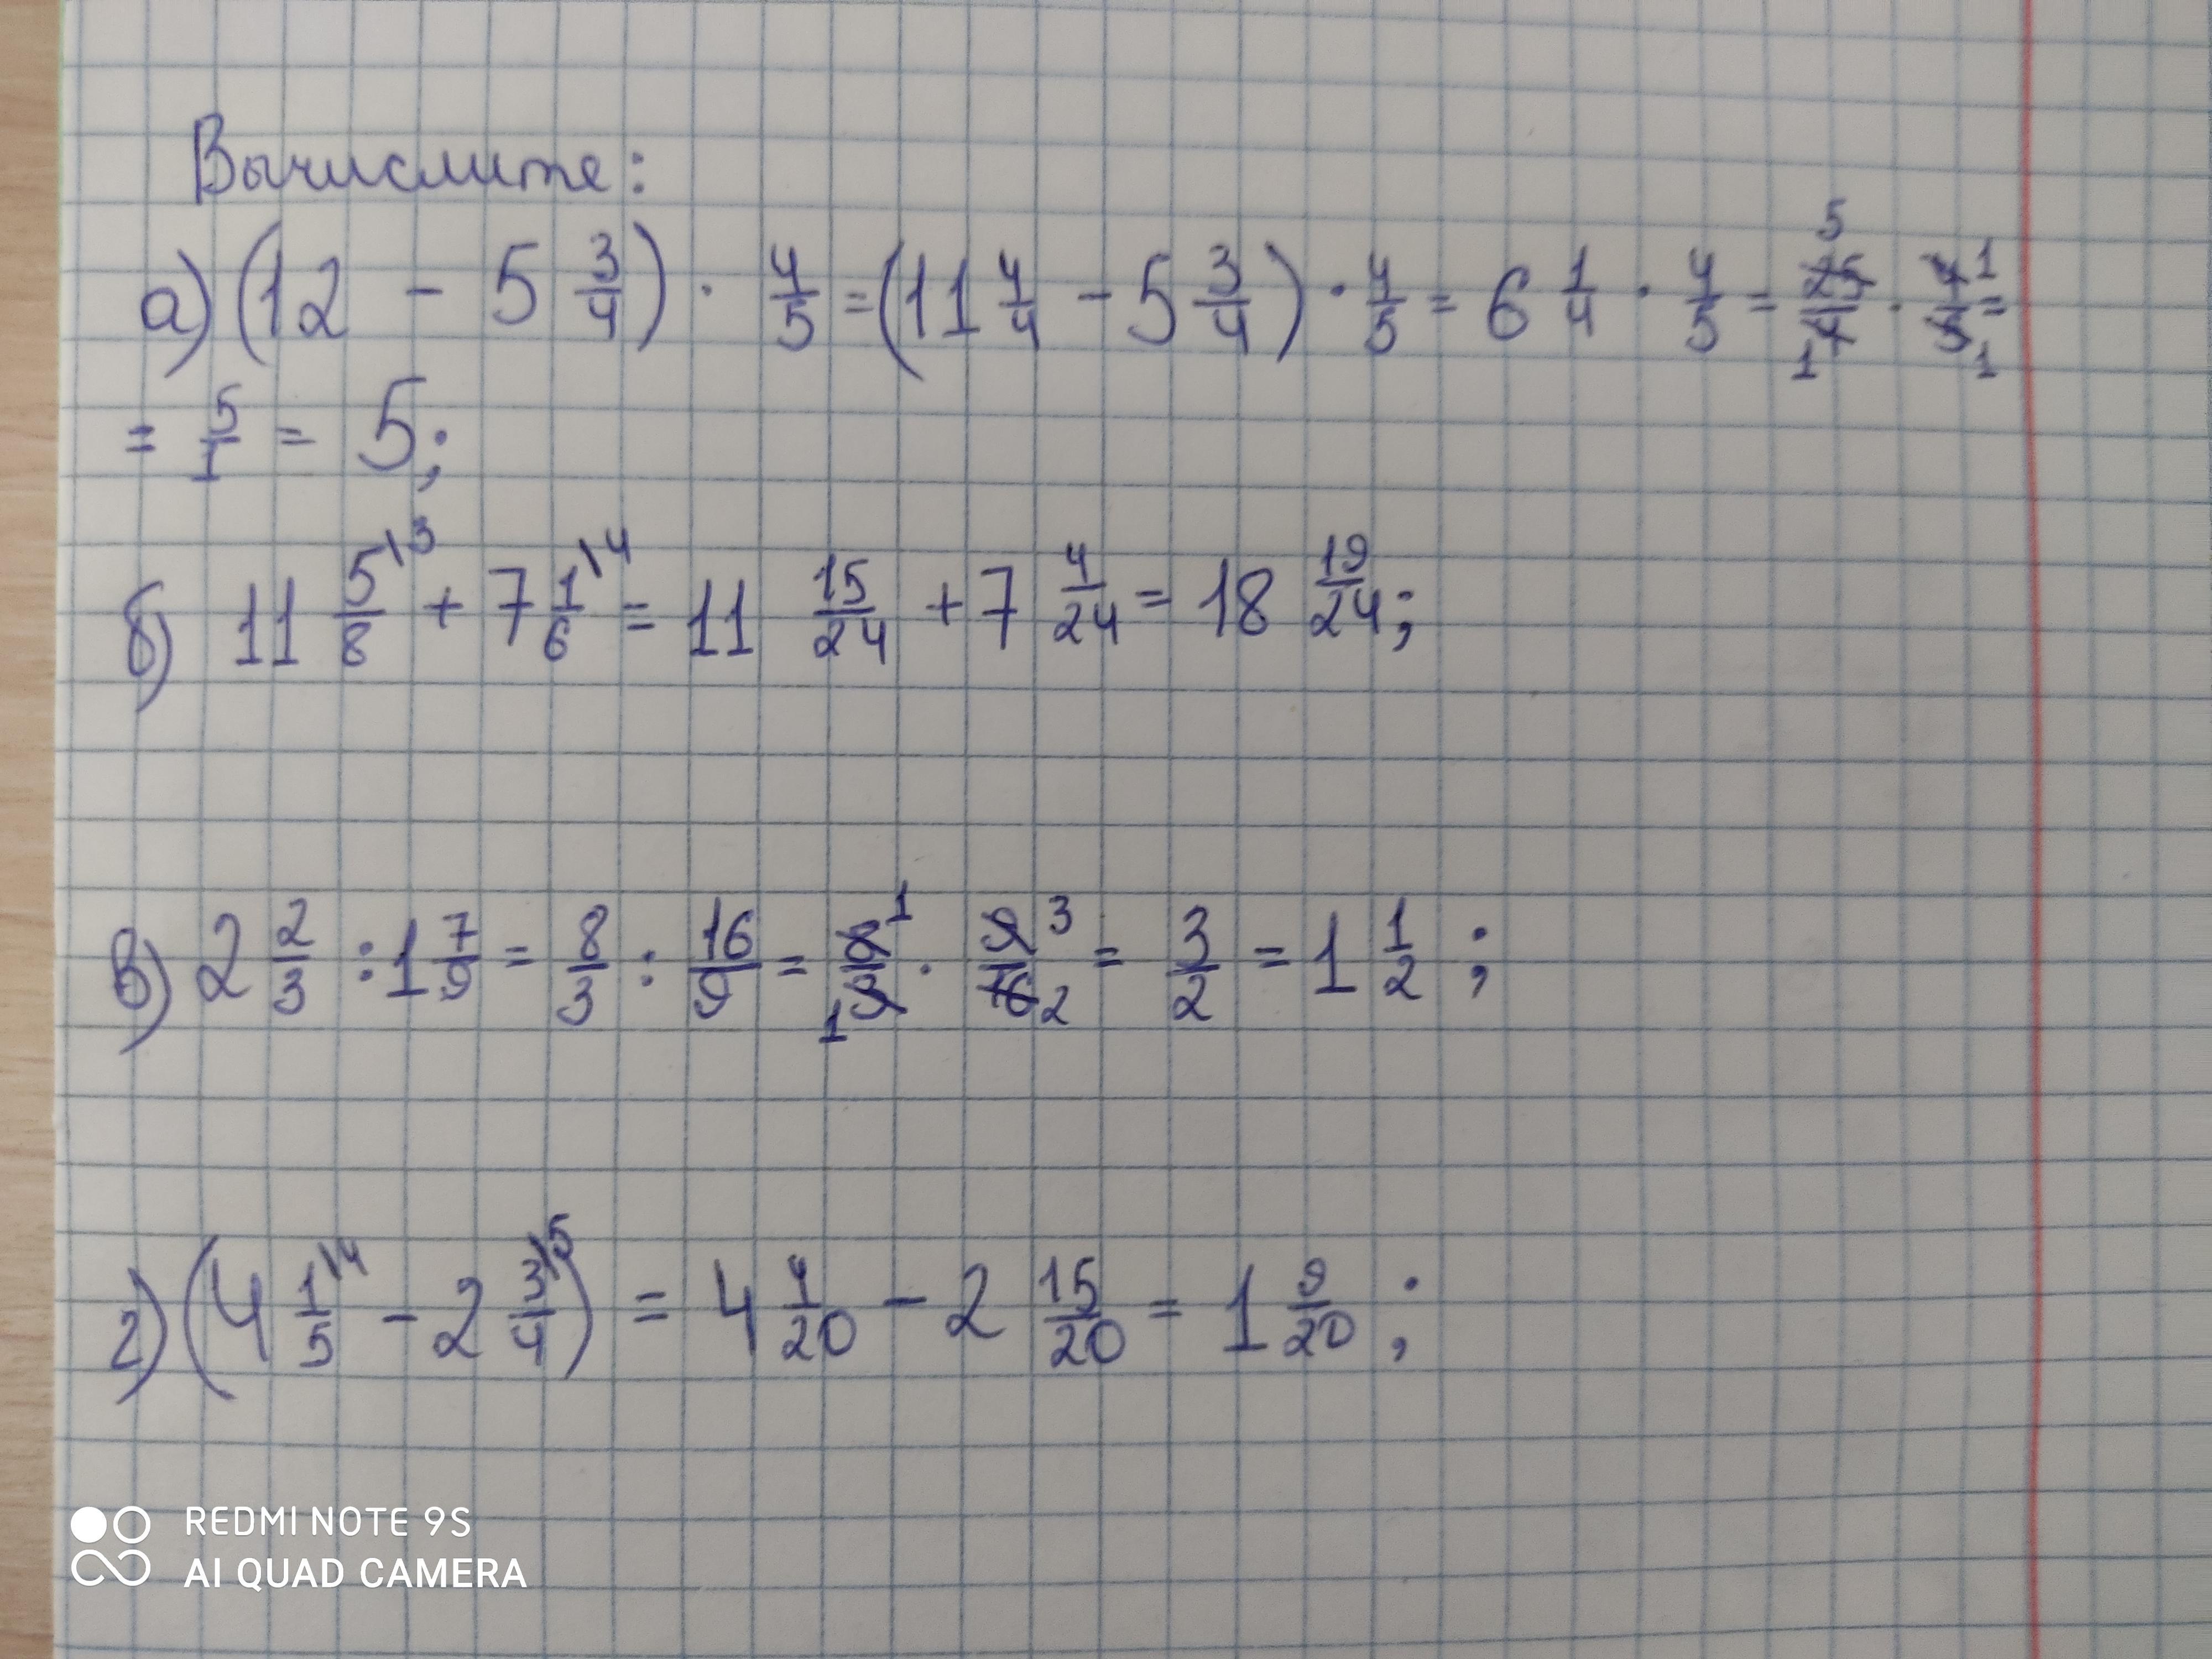 Вычислите:
а) (12 - 5 3/4) · 4/5 = (11 4/4 - 5 3/4) · 4/5 = 6 1/4 · 4/5 = 25/4 5 1 · 4/5 1 1 =
= 5/1 = 5;
б) 11 5/8 \3 + 7 1/6 \4 = 11 15/24 + 7 4/24 = 18 19/24;
в) 2 2/3 : 1 7/9 = 8/3 : 16/9 = 8/3 1 1 · 9/16 3 2 = 3/2 = 1 1/2;
г) (4 1/5 \4 - 2 3/4 \5) = 4 4/20 - 2 15/20 = 1 9/20;
REDMI NOTE 9S
AI QUAD CAMERA